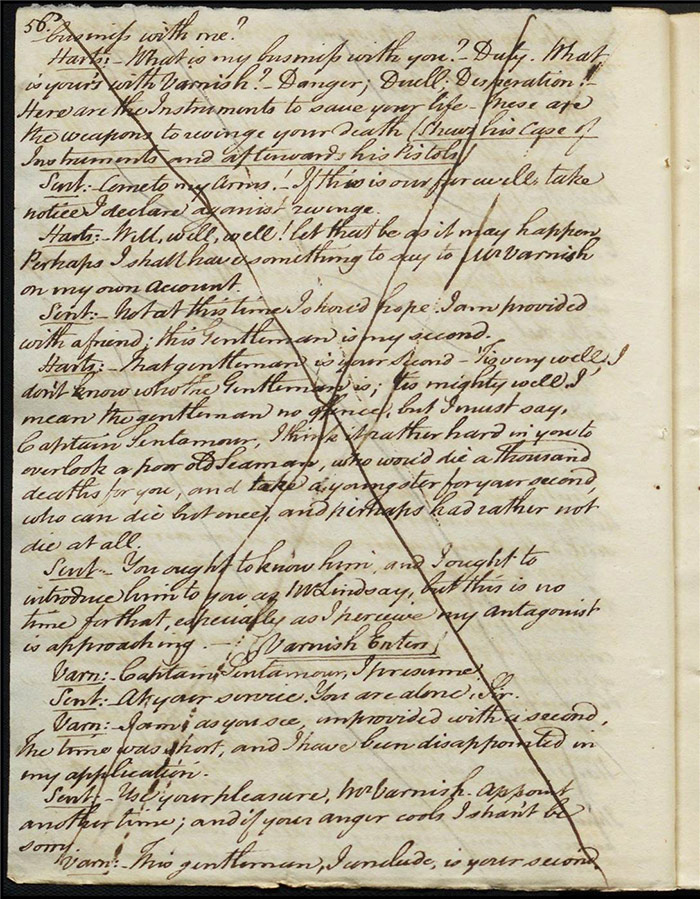 56
business with me?
Harts:- What is my business with you? - Duty. What
is your's with Varnish? - Danger; Duell: Desperation! -
Here are the Instruments to save your life - these are
the weapons to revenge your death (shews his case of
Instruments and afterwards his Pistols)
Sent:- Come to my Arms! - If this is our farewell, take
notice I declare against revenge.
Harts:- Well, well, well! let that be as it may happen,
Perhaps I shall have something to say to Mr Varnish
on my own account.
Sent:- Not at this time I shou'd hope: I am provided
with a friend; this Gentleman is my second.
Harts:- That gentleman is your second - 'Tis very well, I
don't know who the Gentleman is; 'tis mighty well. I
mean the gentleman no offence, but I must say,
Captain Sentamour, I think it rather hard in you to
overlook a poor old Seaman, who wou'd die a thousand
deaths for you, and take a youngster for your second,
who can die but once, and perhaps had rather not
die at all.
Sent:- You ought to know him, and I ought to
introduce him to you as Mr Lindsay, but this is no
time for that, especially as I perceive my antagonist
is approaching. - (Varnish Enters)
Varn:- Captain Sentamour, I presume.
Sent:- At your service. You are alone, Sir.
Varn:- I am, as you see, unprovided with a second,
The time was short, and I have been disappointed in
my application.
Sent:- Use your pleasure, Mr Varnish. Appoint
another time; and if your anger cools I shan't be
sorry.
Varn:- This gentleman, I conclude, is your second.